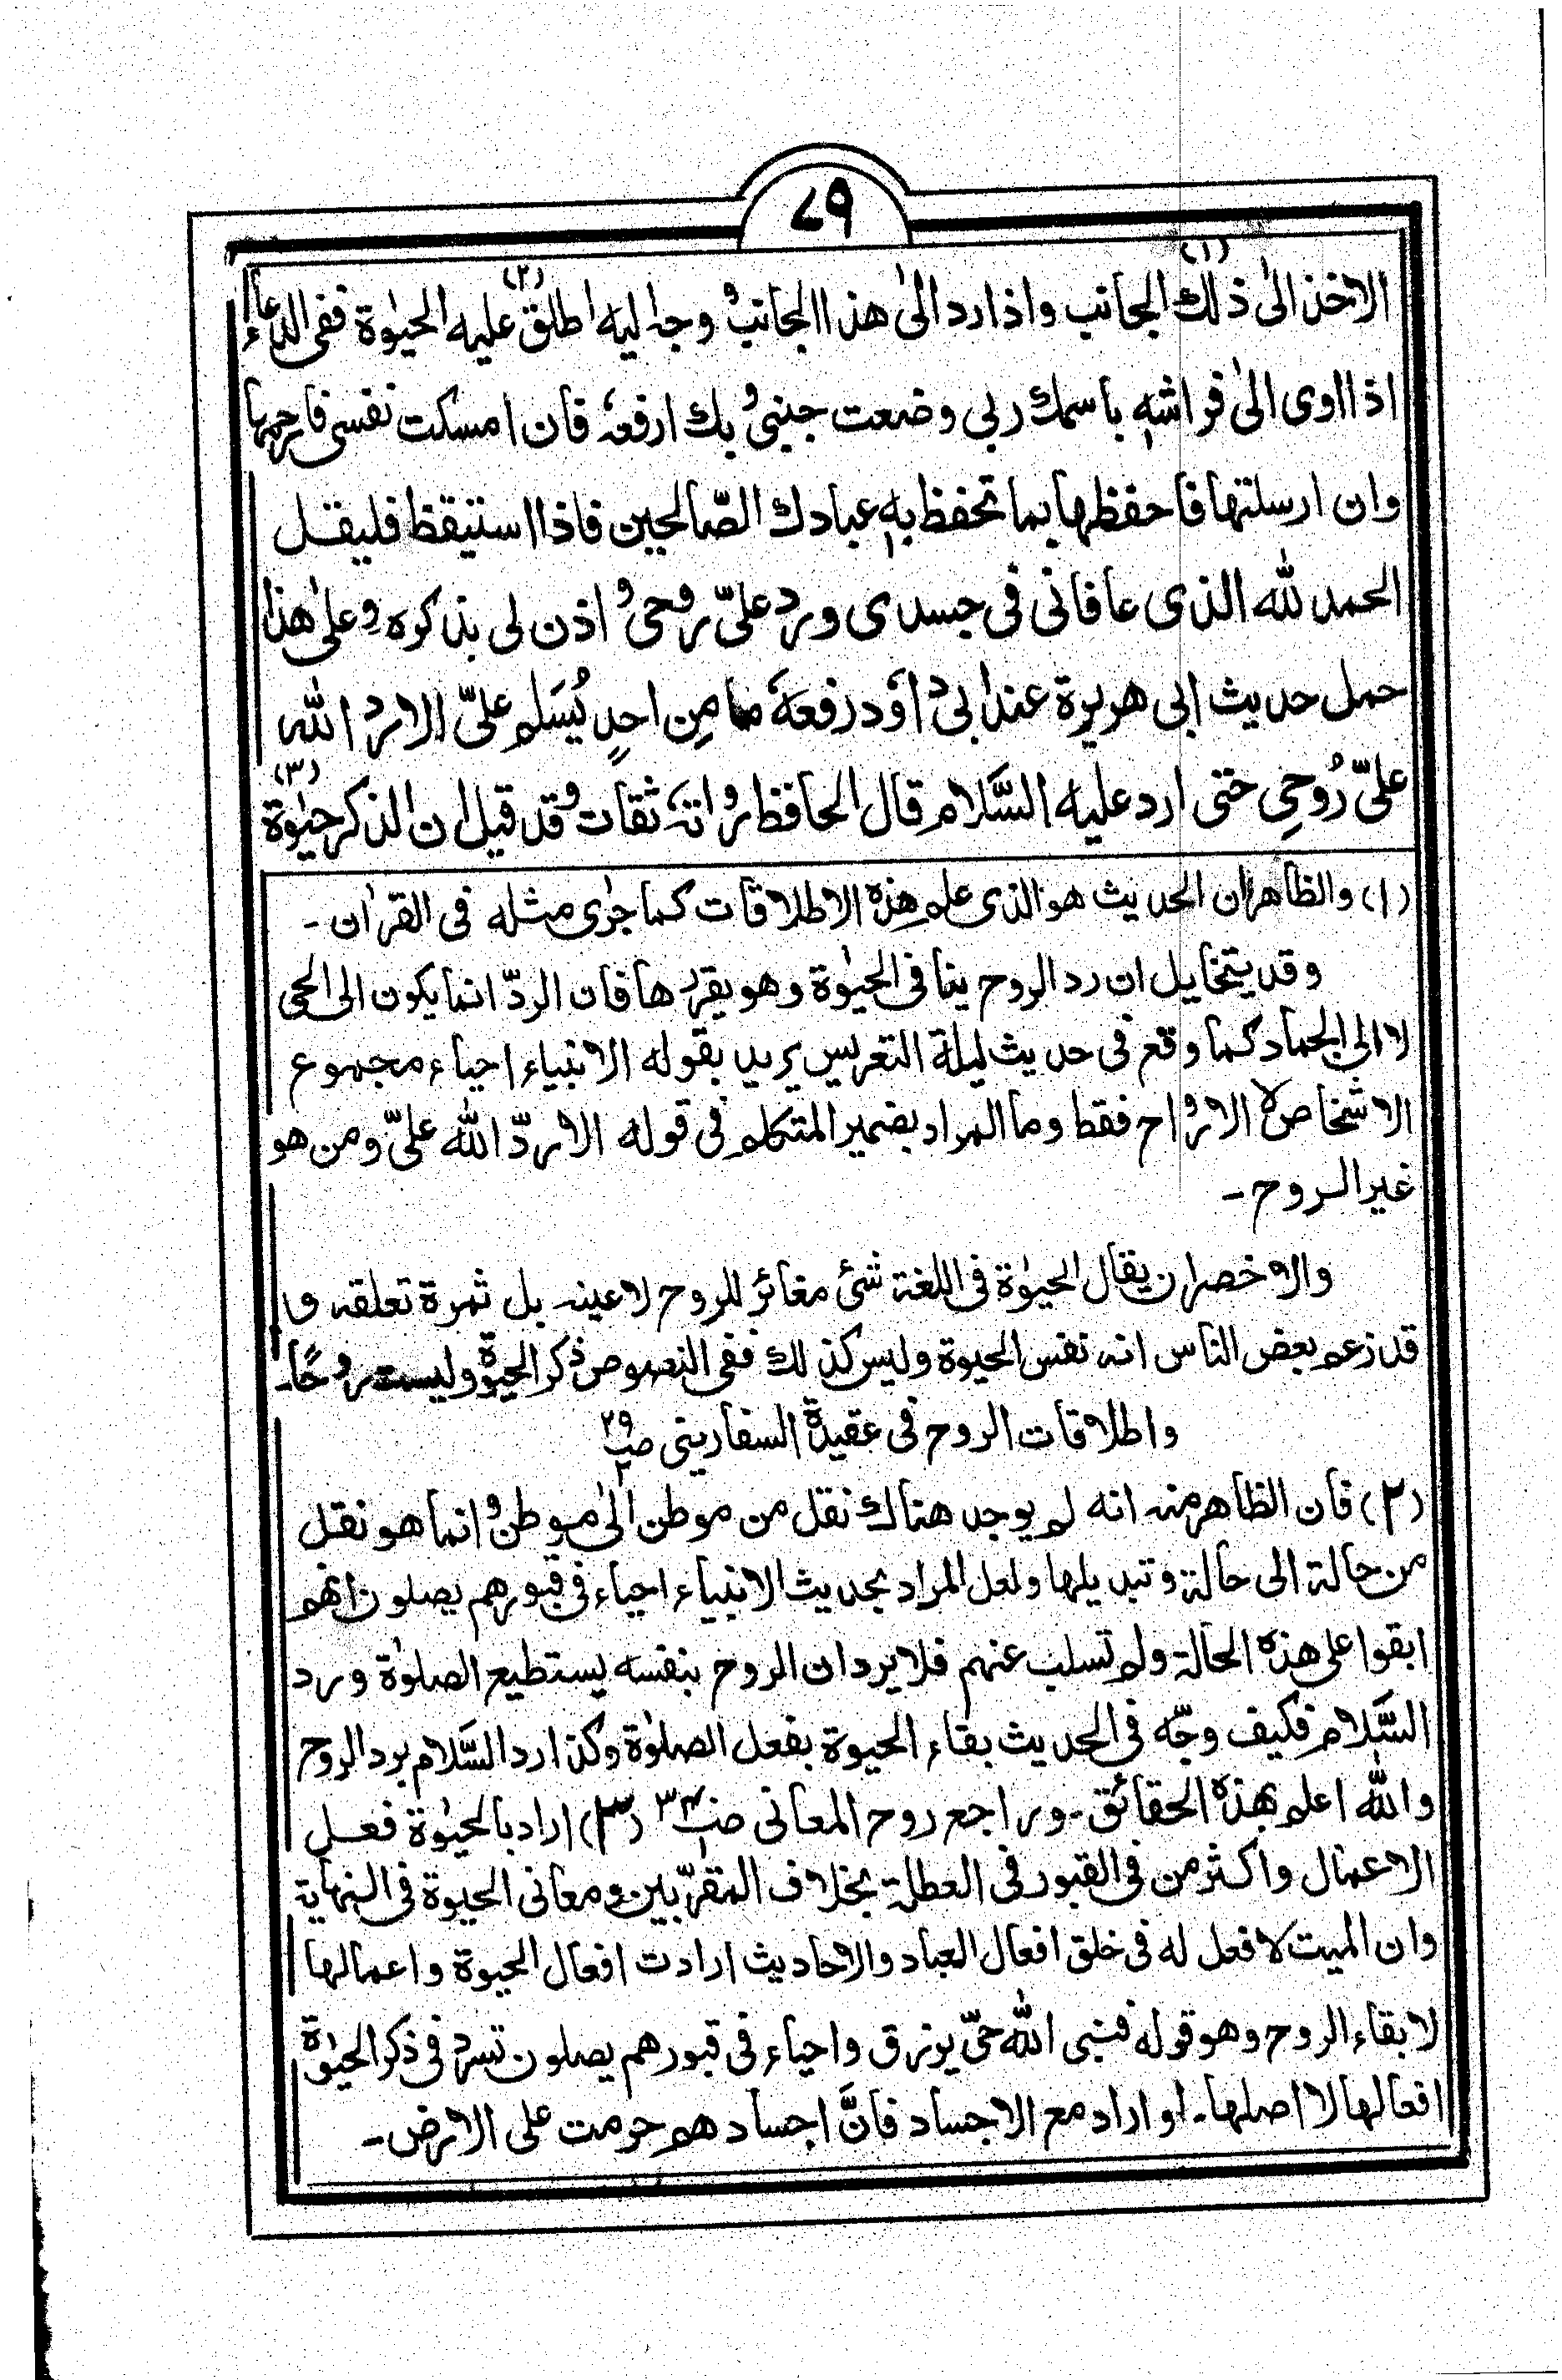 ٧٩
الاخذ الىٰ ذلك (١) الجانب واذا رد الىٰ هذا الجانب ووجه اليه اطلق (٢) عليه الحيٰوة ففى الدعاء
اذا اوى الىٰ فراشه باسمك ربى وضعت جنبى وبك ارفعه فان امسكت نفسى فارحمها
وان ارسلتها فاحفظها بما تحفظ به عبادك الصّالحين فاذا استيقظ فليقل
الحمد لله الذى عافانى فى جسدى ورد علىّ روحى واذن لى بذكره وعلىٰ هذا
حمل حديث ابى هريرة عند ابى داؤد رفعهٗ ما مِن احدٍ يُسَلم علىّ الا رد الله
علىّ رُوحِى حتى ارد عليه السَّلام قال الحافظ رواته ثقات وقد قيل ان الذكر حيٰوة (٣)
(١) والظاهر ان الحديث هو الذى علم هذه الاطلاقات كما جرٰى مثله فى القرآن ۔
وقد يتخايل ان رد الروح ينافى الحيٰوة وهو يقررها فان الردّ انما يكون الى الحى
لا الى الجماد كما وقع فى حديث ليلة التعريس يريد بقوله الانبياء احياء مجموع
الاشخاص لا الارواح فقط وما المراد بضمير المتكلم فى قوله الا ردّ الله علىّ ومن هو
غير الروح ۔
والاخصر ان يقال الحيٰوة فى اللغة شئ مغائر للروح لا عينه بل ثمرة تعلقه و
قد زعم بعض الناس انه نفس الحيوة وليس كذلك ففى النصوص ذكر الحيوة وليست روحًا۔
واطلاقات الروح فى عقيدة السفارينى ص ٢٩
(٢) فان الظاهر منه انه لم يوجد هناك نقل من موطن الىٰ موطن وانما هو نقل
من حالة الى حالة وتبديلها ولعل المراد بحديث الانبياء احياء فى قبورهم يصلون انهم
ابقوا على هذه الحالة ولم تسلب عنهم فلا يرد ان الروح بنفسه يستطيع الصلوٰة ورد
السَّلام فكيف وجّه فى الحديث بقاء الحيوة بفعل الصلوٰة وكذا رد السَّلام برد الروح
والله اعلم بهذه الحقائق ۔ وراجع روح المعانى ص (٣) اراد بالحيٰوة فعل
الاعمال واكثر من فى القبور فى العطلة بخلاف المقرّبين ومعانى الحيوة فى النهاية
وان الميت لا فعل له فى خلق افعال العباد والاحاديث ارادت افعال الحيوة واعمالها
لا بقاء الروح وهو قوله فنبى الله حىّ يرزق واحياء فى قبورهم يصلون تسرد فى ذكر الحيٰوة
افعالها لا اصلها۔ او اراد مع الاجساد فانَّ اجسادهم حرمت على الارض ۔